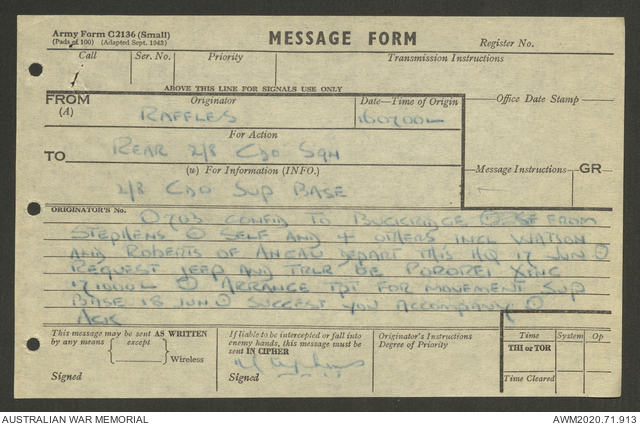 Army Form C2136 (Small)
(Pads of 100) (Adapted Sept. 1943)
MESSAGE FORM
Register No.
Call
Ser. No.
Priority
Transmission Instructions
ABOVE THIS LINE FOR SIGNALS USE ONLY
FROM
(A)
Originator
RAFFLES
Date—Time of Origin
160700L
Office Date Stamp
For Action
TO
REAR 2/8 CDO SQN
(W) For Information (INFO.)
Message Instructions
GR
2/8 CDO SUP BASE
ORIGINATOR'S No.
O703 CONFD TO BUCKRIDGE FROM
STEPHENS SELF AND 4 OTHERS INCL WATSON
AND ROBERTS OF ANGAU DEPART THIS HQ 17 JUN
REQUEST JEEP AND TRLR BE POROREI XING
171000L ARRANGE TPT FOR MOVEMENT SUP
BASE 18 JUN SUGGEST YOU ACCOMPANY
ACK
This message may be sent AS WRITTEN
by any means except
Wireless
Signed
If liable to be intercepted or fall into
enemy hands, this message must be
sent IN CIPHER
Signed
Originator's Instructions
Degree of Priority
Time
System
Op
THI or TOR
Time Cleared
AUSTRALIAN WAR MEMORIAL
AWM2020.71.913